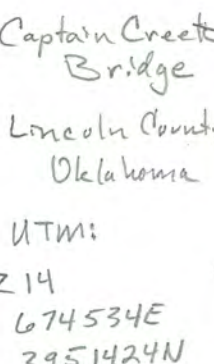 Captain Creek
Bridge
Lincoln County
Oklahoma
UTM:
Z 14
674534E
3951424N